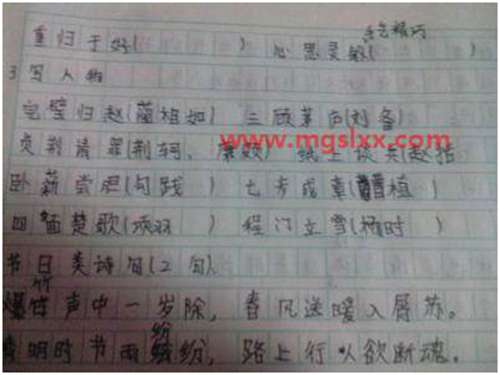 重归于好( ) 心思灵敏(
手艺精巧
3写人物
完璧归赵(蔺相如) 三顾茅庐(刘备)
www.mgslxx.com
负荆请罪(荆轲、廉颇) 纸上谈兵(赵括
卧薪尝胆(勾践 ) 七步成章(曹植)
四面楚歌(项羽 ) 程门立雪(杨时 )
节日类诗句(2句)
竹
爆竹声中一岁除，春风送暖入屠苏。
纷
清明时节雨纷纷，路上行人欲断魂。